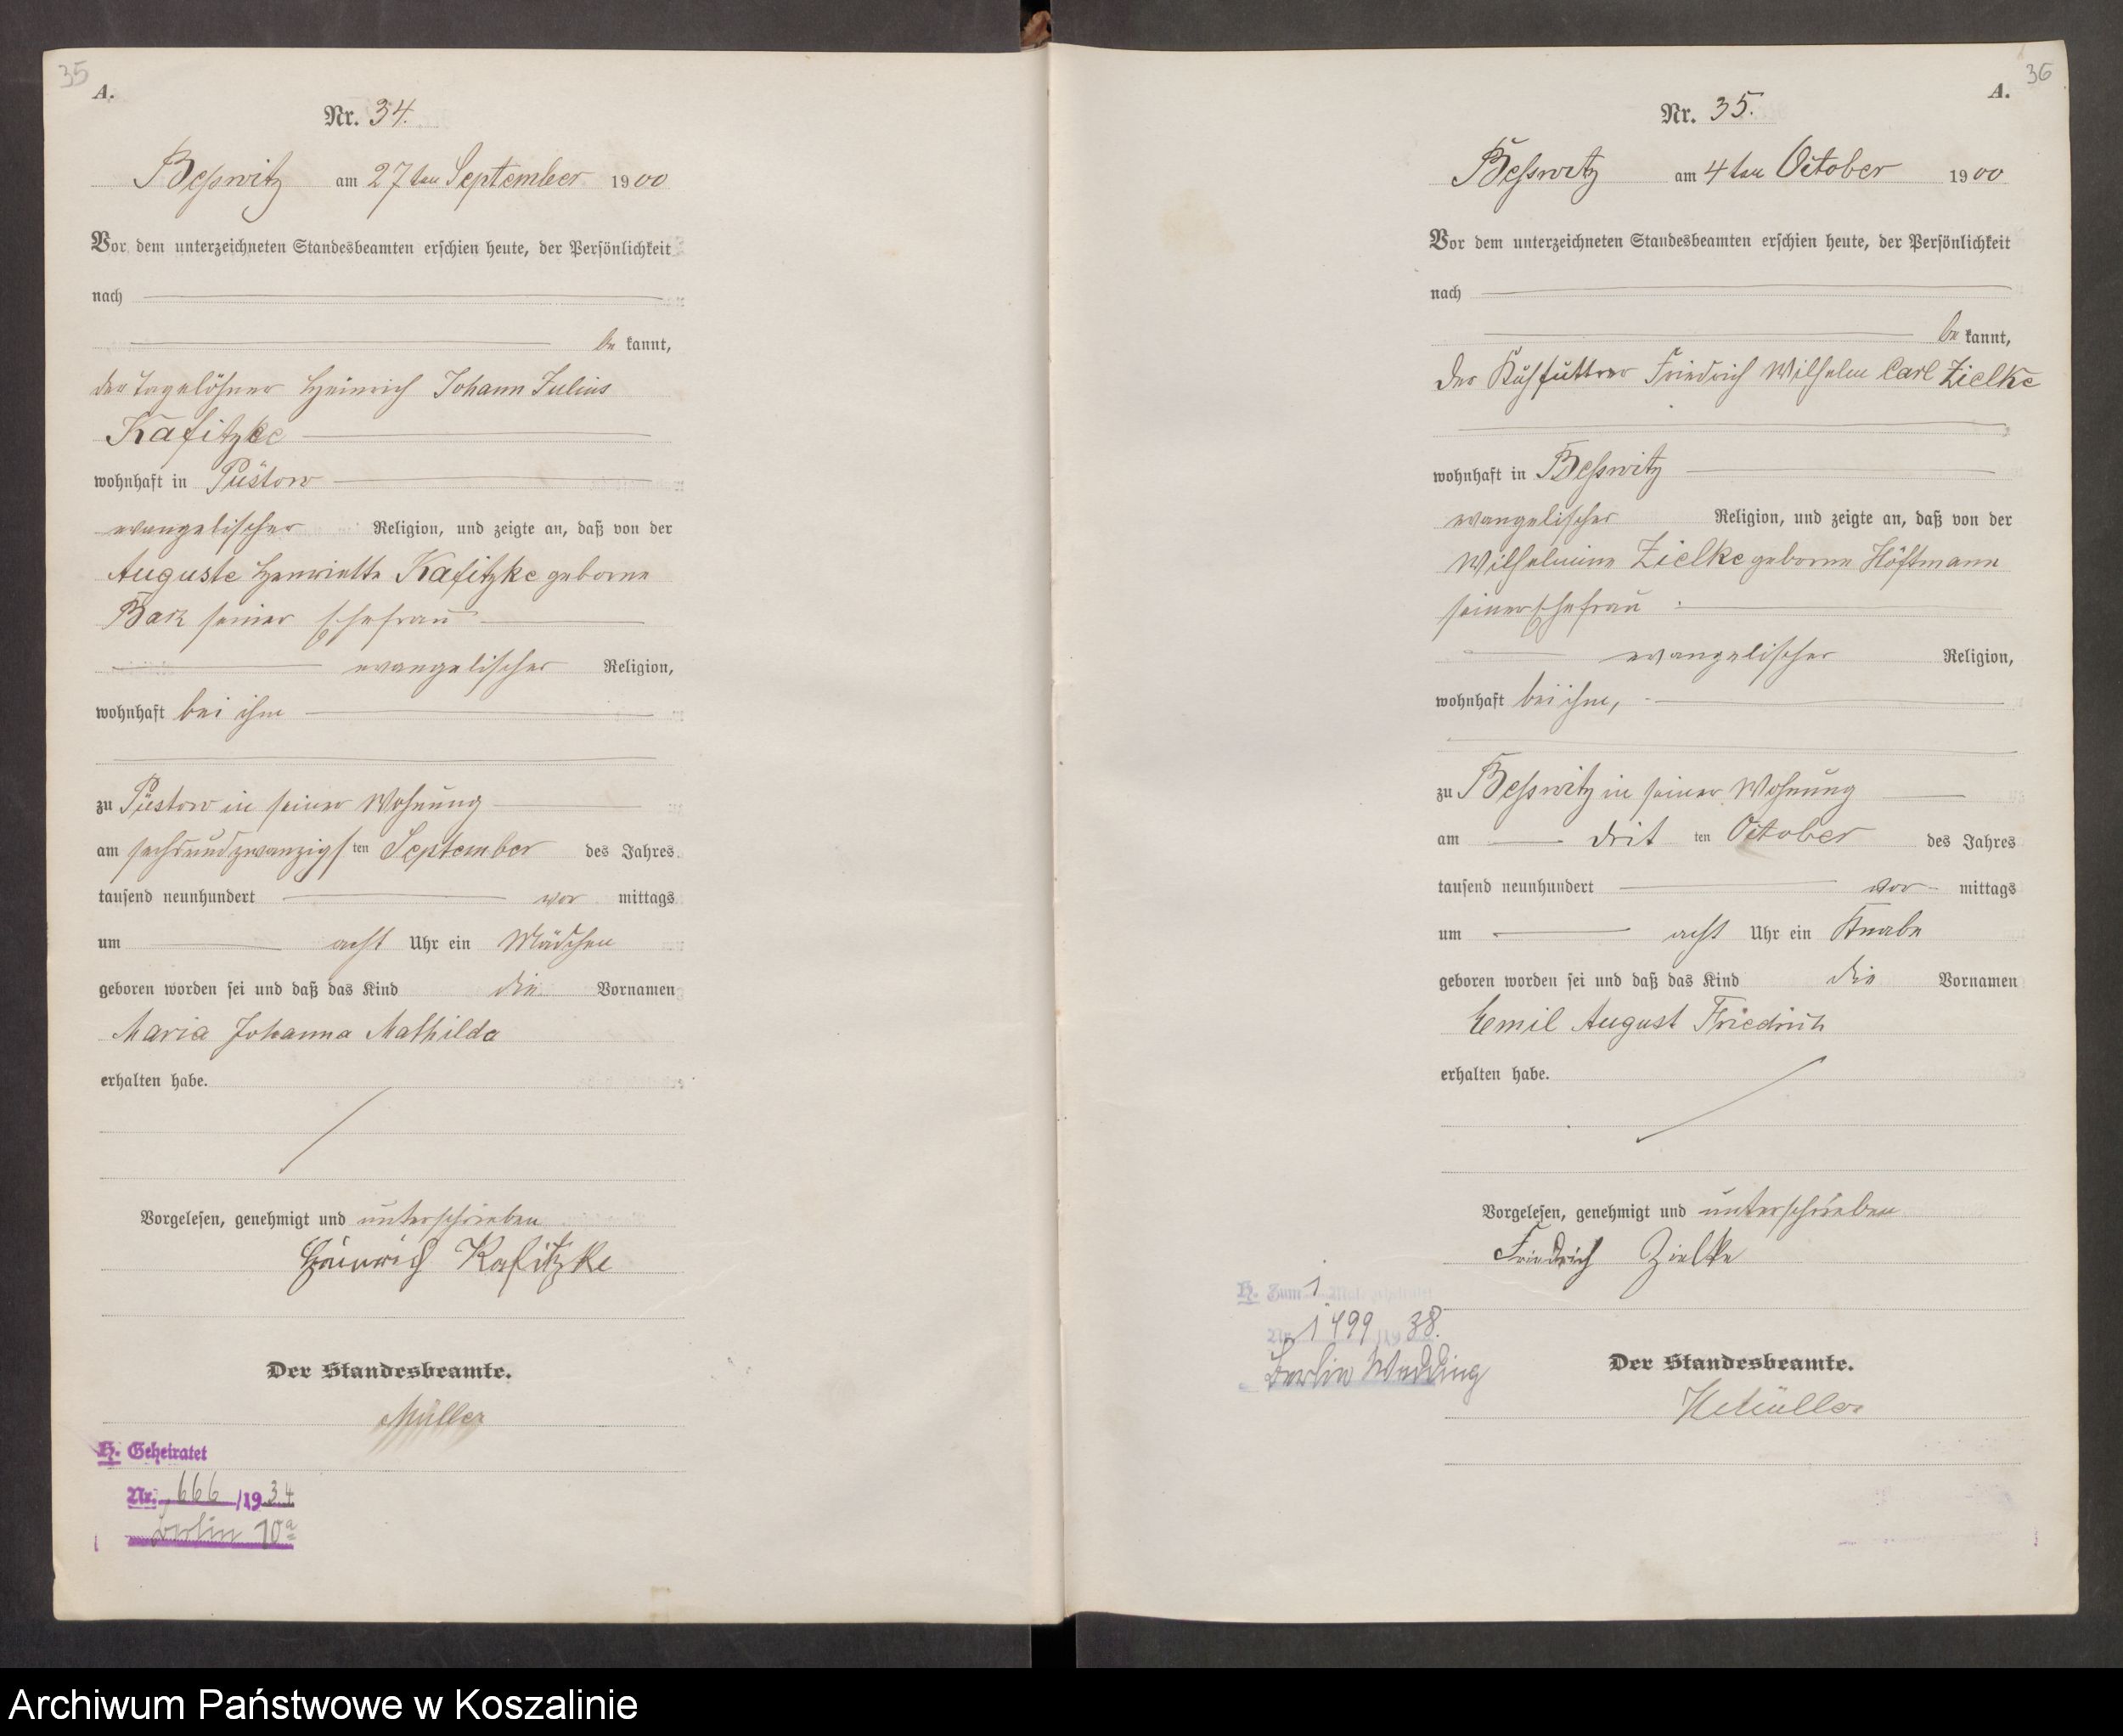 35
A.
Nr. 34.
Beßwitz am 27ten September 1900
Vor dem unterzeichneten Standesbeamten erschien heute, der Persönlichkeit
nach
be kannt,
der Tagelöhner Heinrich Johann Julius
Kafitzke
wohnhaft in Püstow
evangelischer Religion, und zeigte an, daß von der
Auguste Henriette Kafitzke geborne
Bark seiner Ehefrau
evangelischer Religion,
wohnhaft bei ihm
zu Püstow in seiner Wohnung
am sechsundzwanzigsten September des Jahres
tausend neunhundert vor mittags
um acht Uhr ein Mädchen
geboren worden sei und daß das Kind die Vornamen
Maria Johanna Mathilda
erhalten habe.
Vorgelesen, genehmigt und unterschrieben
Heinrich Kafitzke
Der Standesbeamte.
Müller
H. Geheiratet
Nr. 666/1934
Berlin 10a
36
A.
Nr. 35.
Beßwitz am 4ten October 1900
Vor dem unterzeichneten Standesbeamten erschien heute, der Persönlichkeit
nach
be kannt,
der Kuhfuttrer Friedrich Wilhelm Carl Zielke
wohnhaft in Beßwitz
evangelischer Religion, und zeigte an, daß von der
Wilhelmine Zielke geborne Höftmann
seiner Ehefrau
evangelischer Religion,
wohnhaft bei ihm,
zu Beßwitz in seiner Wohnung
am drit ten October des Jahres
tausend neunhundert vor mittags
um acht Uhr ein Knabe
geboren worden sei und daß das Kind die Vornamen
Emil August Friedrich
erhalten habe.
Vorgelesen, genehmigt und unterschrieben
Friedrich Zielke
H. Zum 1
Nr. 1499/1938.
Berlin Wedding
Der Standesbeamte.
Müller
Archiwum Państwowe w Koszalinie